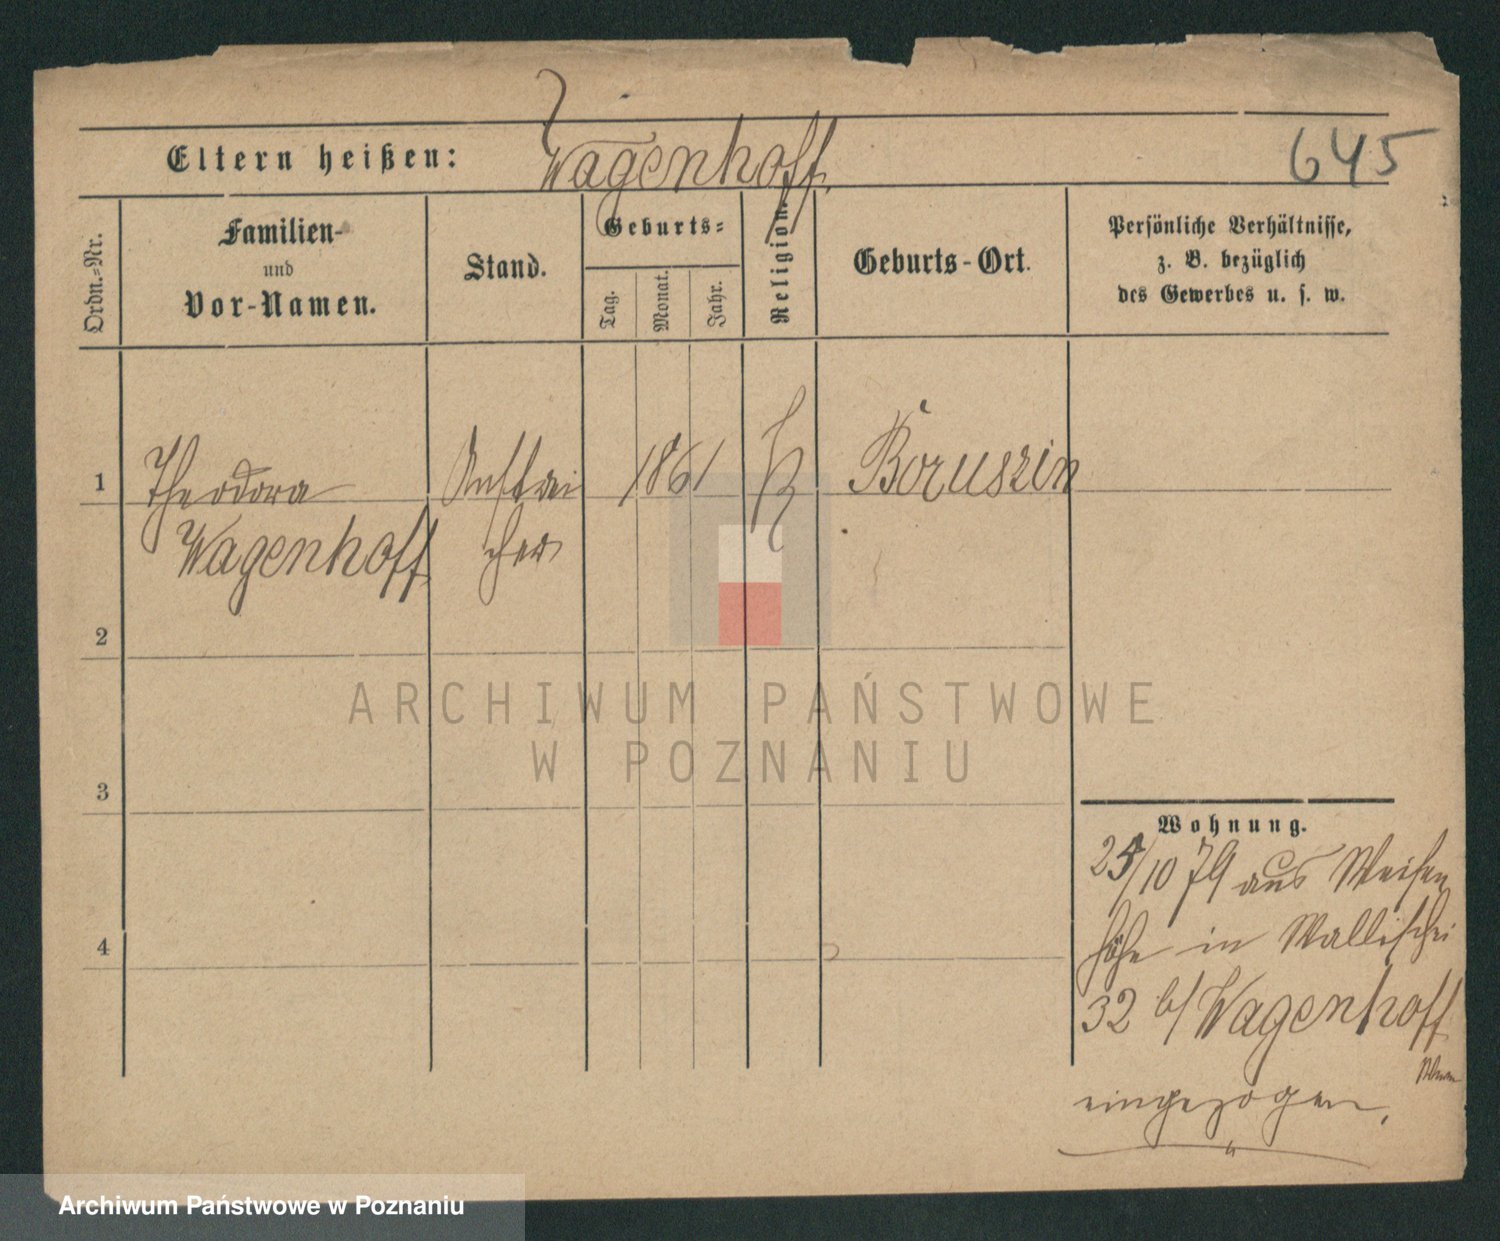 Eltern heißen:
Wagenhoff.
645
Ordn.-Nr.
Familien-
und
Vor-Namen.
Stand.
Geburts-
Tag.
Monat.
Jahr.
Religion
Geburts-Ort.
Persönliche Verhältnisse,
z. B. bezüglich
des Gewerbes u. s. w.
1
Theodora
Wagenhoff
1861
Boruszin
2
3
4
ARCHIWUM PAŃSTWOWE
W POZNANIU
Wohnung.
/10 79 aus Weißen
höhe in Wallischei
32 b/ Wagenhoff
eingezogen,
Archiwum Państwowe w Poznaniu